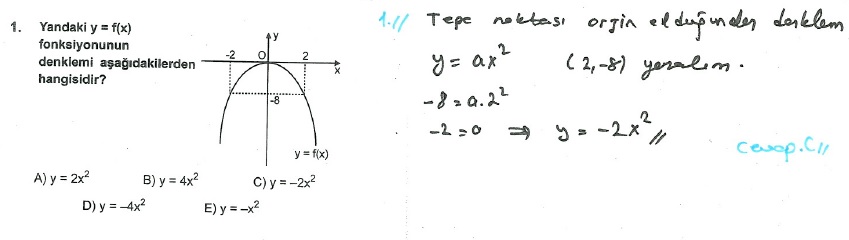 1. Yandaki y = f(x)
fonksiyonunun
denklemi aşağıdakilerden
hangisidir?
y
-2 O 2
x
-8
y = f(x)
A) y = 2x² B) y = 4x² C) y = –2x²
D) y = –4x² E) y = –x²
1.// Tepe noktası orjin olduğundan denklem
y = ax² (2,-8) yazalım.
-8 = a.2²
-2 = a ⇒ y = -2x² //
Cevap.C//